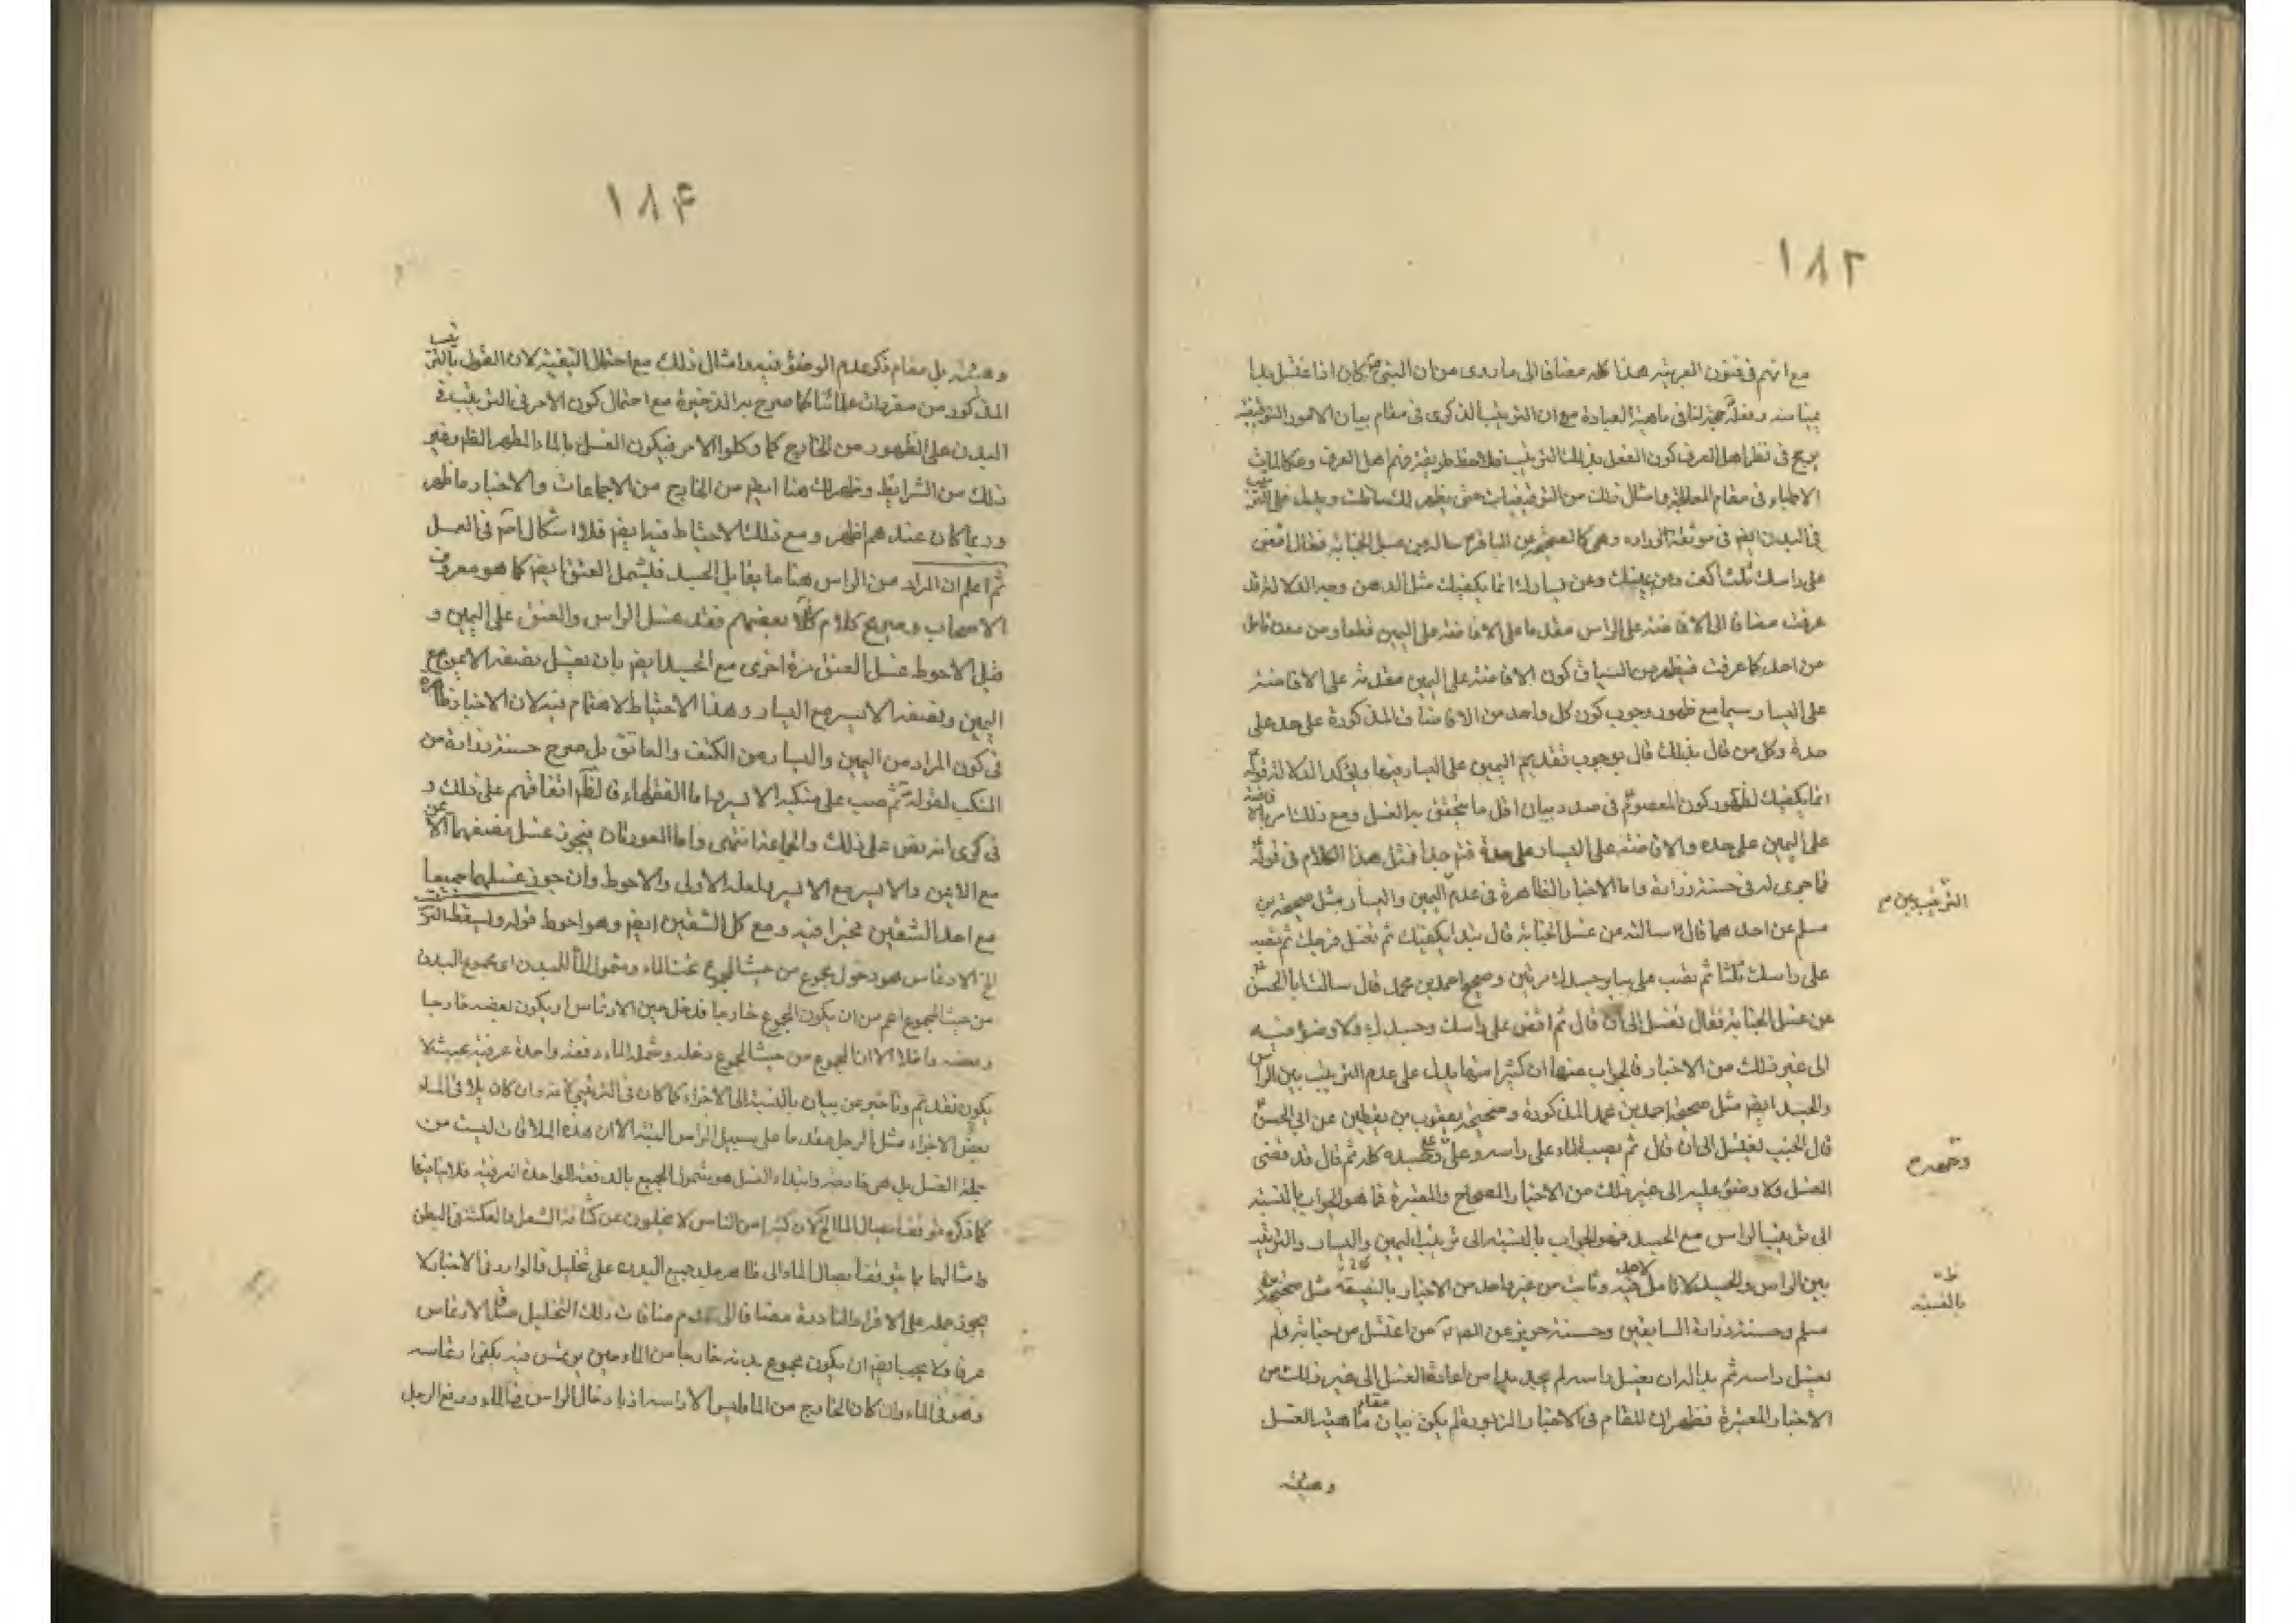 ١٨٣
مع انهم فى فنون العربية هذا كله مضافا الى ما روى من ان النبى ص كان اذا اغتسل بدا
بميامنه وفعله حجة لنا فى ماهية العبادة مع ان الترتيب الذكرى فى مقام بيان الامور التوقيفية
يرجح فى نظر اهل العرف كون الفعل بذلك الترتيب فلاحظ طريقة فهم اهل العرف وعكالمات
الاطباء فى مقام المعالجة وامثال ذلك من التوقيفيات حتى يظهر لك ما قلت ويدل على الترتيب
فى البدن ايضم فى موثقة زرارة وهى كالصحيحة عن الباقر ع سالته عن غسل الجنابة فقال افض
على راسك ثلث اكف وعن يمينك وعن يسارك انما يكفيك مثل الدهن وجه الدلالة قد
عرفت مضافا الى الافاضة على الراس مقدما على الافاضة على اليمين قطعا ومن دون تامل
من احد كما عرفت فيظهر من السياق كون الافاضة على اليمين مقدمة على الافاضة
على اليسار سيما مع ظهور وجوب كون كل واحد من الافاضات المذكورة على حدة على
حدة وكل من قال بذلك قال بوجوب تقديم اليمين على اليسار فيها ويؤكد الدلالة قوله ع
انما يكفيك لظهور كون المعصوم ع فى صدد بيان اقل ما يتحقق به الغسل ومع ذلك امر بالافاضة
على اليمين على حده والافاضة على اليسار على حدة فتم جدا فمثل هذا الكلام فى قوله ع
فما جرى له فى حسنة زرارة واما الاخبار الظاهرة فى عدم اليمين واليسار مثل صحيحة بن
الترتيب بين م
مسلم عن احدهما قال سالته عن غسل الجنابة قال تبدا بكفيك ثم تغسل فرجك ثم تصب
على راسك ثلثا ثم تصب على ساير جسدك مرتين وصحيح احمد بن محمد قال سالت ابا الحسن ع
عن غسل الجنابة فقال تغسل الى ان قال ثم افض على راسك وجسدك ولا وضوء فيه
الى غير ذلك من الاخبار فالجواب عنها ان كثيرا منها يدل على عدم الترتيب بين الراس
والجسد ايضم مثل صحيحة احمد بن محمد المذكورة وصحيحة يعقوب بن يقطين عن ابى الحسن ع
قال الجنب يغتسل الى ان قال ثم يصب الماء على راسه وعلى جسده كله ثم قال قد قضى
وجهه م
الغسل ولا وضوء عليه الى غير ذلك من الاخبار الصحاح والمعتبرة فما هو الجواب بالنسبة
الى ترتيب الراس مع الجسد فهو الجواب بالنسبة الى ترتيب اليمين واليسار والترتيب
بين الراس والجسد لا تامل لاحد فيه وثابت من غير واحد من الاخبار بالنسبة مثل صحيحة
بالنسبة
مسلم وحسنة زرارة السابقتين وحسنة حريز عن من اغتسل من جنابة ولم
يغسل راسه ثم بدا له ان يغسل راسه لم يجد بدا من اعادة الغسل الى غير ذلك من
الاخبار المعتبرة فظهر ان المقام فى الاخبار المزبورة لم يكن مقام بيان ماهية الغسل
وهيئته
١٨۴
وهيئته بل مقام ذكر عدم الوضوء فيه وامثال ذلك مع احتمال التقية لان القول بالترتيب
المذكور من مفردات علمائنا كما صرح به الذخيرة مع احتمال كون الامر فى الترتيب فى
البدن على الظهور من الخارج كما وكلوا الامر فيكون الغسل بالماء المطهر الطهر وغير
ذلك من الشرايط وظهر لك هنا ايضم من الخارج من الاجماعات والاخبار ما ظهر
وربما كان عندهم اظهر ومع ذلك الاحتياط فيه ايضم فلا اشكال اصم فى العمل
ثم اعلم ان المراد من الراس هنا ما يقابل الجسد فليشمل العنق ايضم كما هو معروف
الاصحاب وصريح كلام بعضهم فقد غسل الراس والعنق على اليمين و
قيل الاحوط غسل العنق مرة اخرى مع الجسد ايضم بان يغسل نصفه الايمن مع
اليمين ونصفه الايسر مع اليسار وهذا الاحتياط لا اهتمام فيه لان الاخبار ظاهرة
فى كون المراد من اليمين واليسار من الكتف والعاتق بل صرح حسنة زرارة من
المنكب لقوله ع ثم صب على منكبه الايسر واما الفقهاء فالظم اتفاقهم على ذلك و
فى كرى انه نص على ذلك والجماعة انتهى واما العورتان فيجوز غسل نصفهما الايمن
مع الايمن والايسر مع الايسر ولعله الاولى والاحوط وان جوز غسلهما جميعا
مع احد الشقين مخيرا فيه ومع كل الشقين ايضم وهو احوط قوله ويسقط الترتيب
الخ الارتماس هو دخول مجموع من حيث المجموع تحت الماء وشمول الماء للبدن اى مجموع البدن
من حيث المجموع اعم من ان يكون المجموع خارجا قد دخل حين الارتماس او يكون بعضه خارجا
وبعضه داخلا الا ان المجموع من حيث المجموع دخله وشمله الماء دفعة واحدة عرفية بحيث لا
يكون تقديم وتاخير عن بيان بالنسبة الى الاجزاء كما كان فى الترتيبى لانه وان كان يلاقى الماء
بعض الاجزاء مثل الرجل مقدما على سبيل الراس البتة الا ان هذه الملاقات ليست من
جملة الغسل بل هى خارجة وابتداء الغسل هو شمول الجميع بالدفعة الواحدة العرفية فلا ينافيها
كما ذكره توقف ايصال الماء الخ لان كثيرا من الناس لا يخلون عن كثافة الشعر او العكنة فى البطن
وامثالهما مما يتوقف ايصال الماء الى ظاهر جلد جميع البدن على تخليل فالوارد فى الاخبار لا
يجوز حمله على الافراد النادرة مضافا الى عدم منافات ذلك التخليل صدق الارتماس
عرفا ولا يجب ايضم ان يكون مجموع بدنه خارجا من الماء حين يرتمس فيه يكفى ارتماسه
وهو فى الماء وان كان الخارج من الماء ليس الا راسه اذ بادخال الراس فى الماء ورفع الرجل